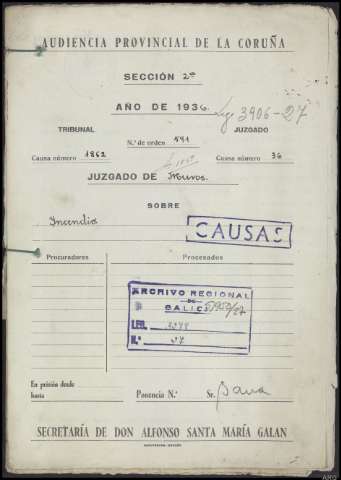 AUDIENCIA PROVINCIAL DE LA CORUÑA
SECCIÓN 2ª
AÑO DE 1936
Leg 3906-27
TRIBUNAL
JUZGADO
N.º de orden 591
Causa número 1862
Causa número 36
JUZGADO DE Muros.
SOBRE
Incendio
CAUSAS
Procuradores
Procesados
ARCHIVO REGIONAL
DE
GALICIA
LEG.
N.º
En prisión desde
hasta
Ponencia N.º
Sr.
SECRETARÍA DE DON ALFONSO SANTA MARÍA GALAN